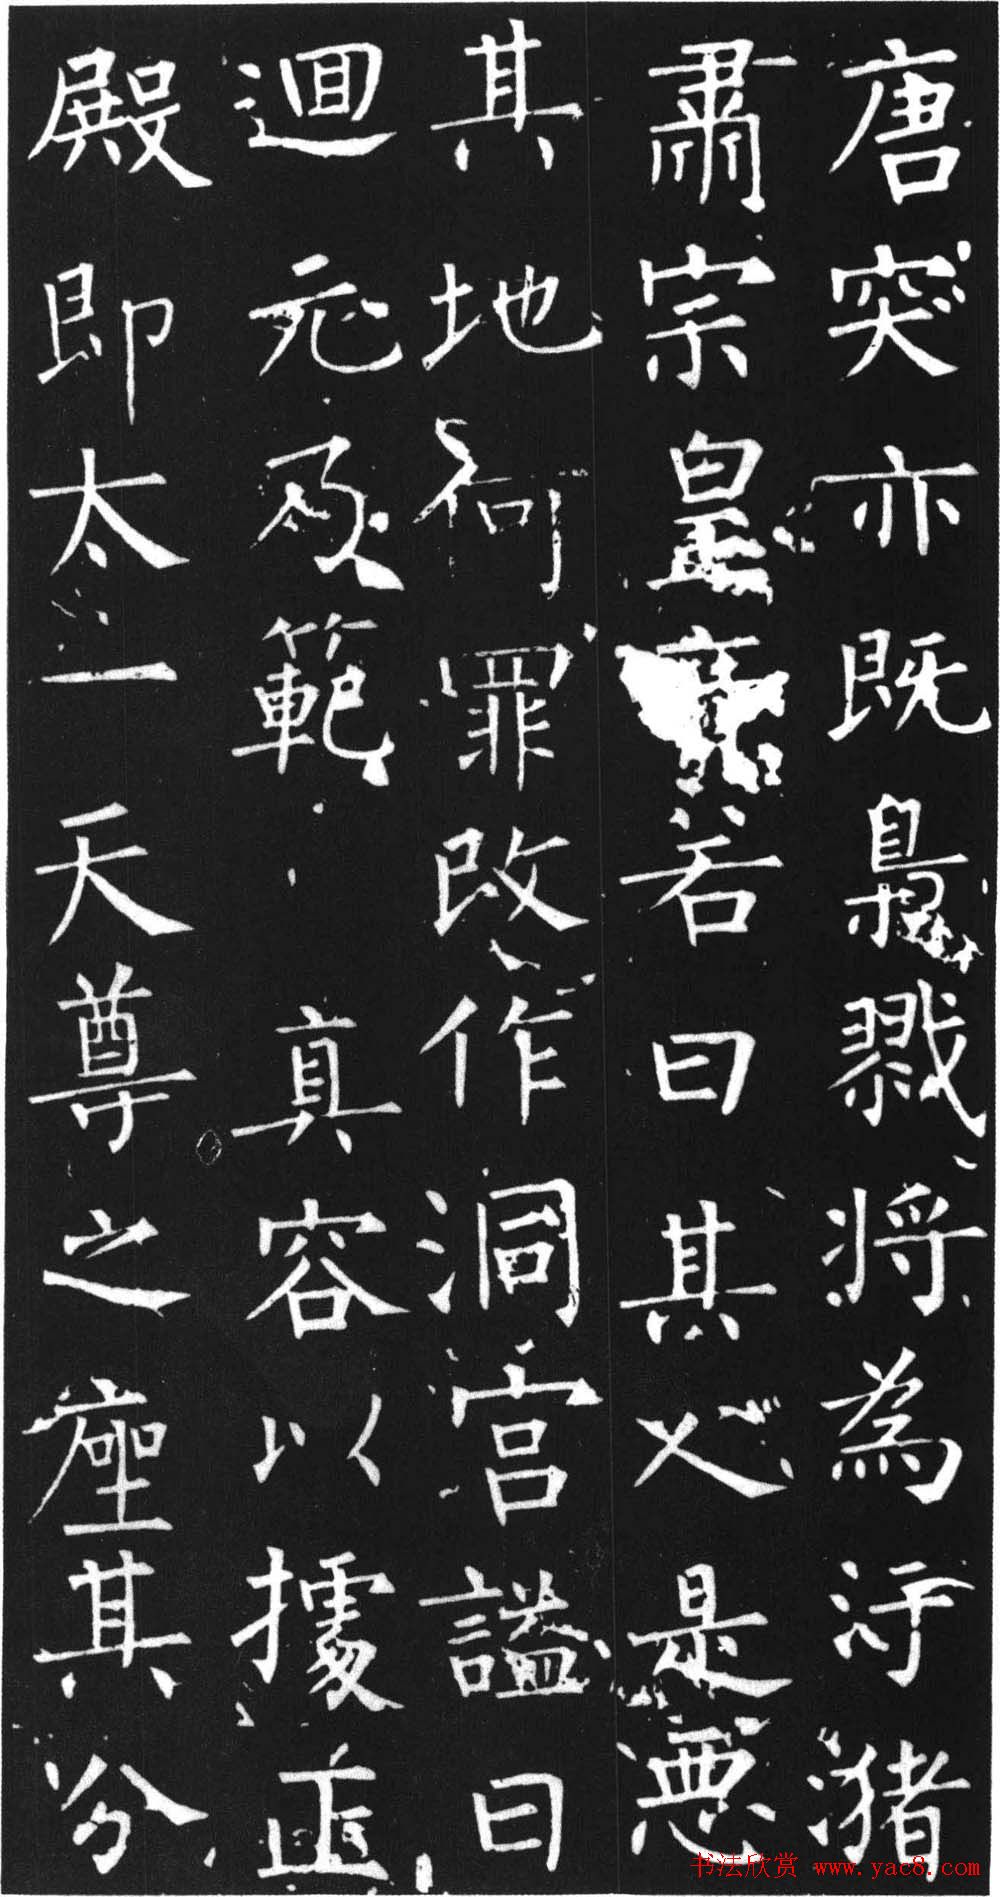 唐突亦既梟戮将為汙瀦
肅宗皇帝若曰其人是惡
其地何罪改作洞宮謚曰
迴元乃範 真容以據正
殿即太一天尊之座其分
书法欣赏 www.yac8.com